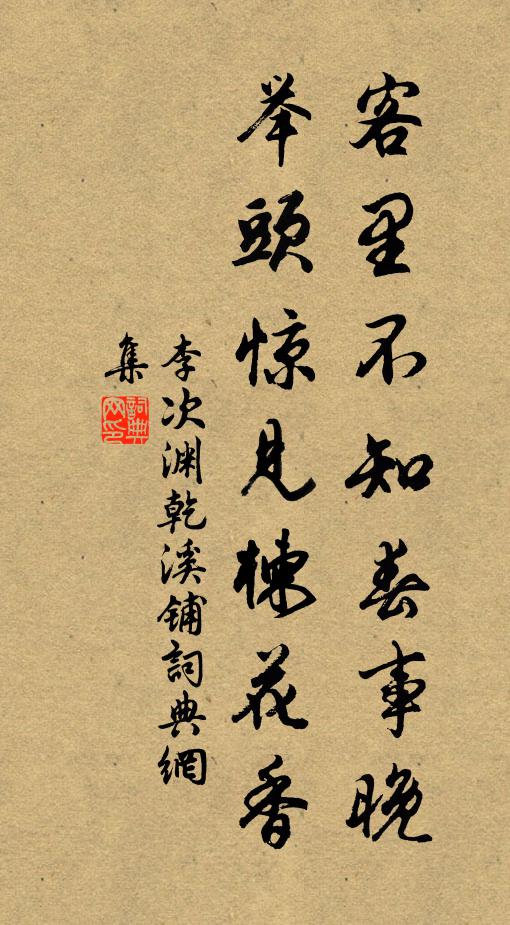 客里不知春事晚
举頭惊見楝花香
李次渊乾溪铺詞典網
集
詞典
网印